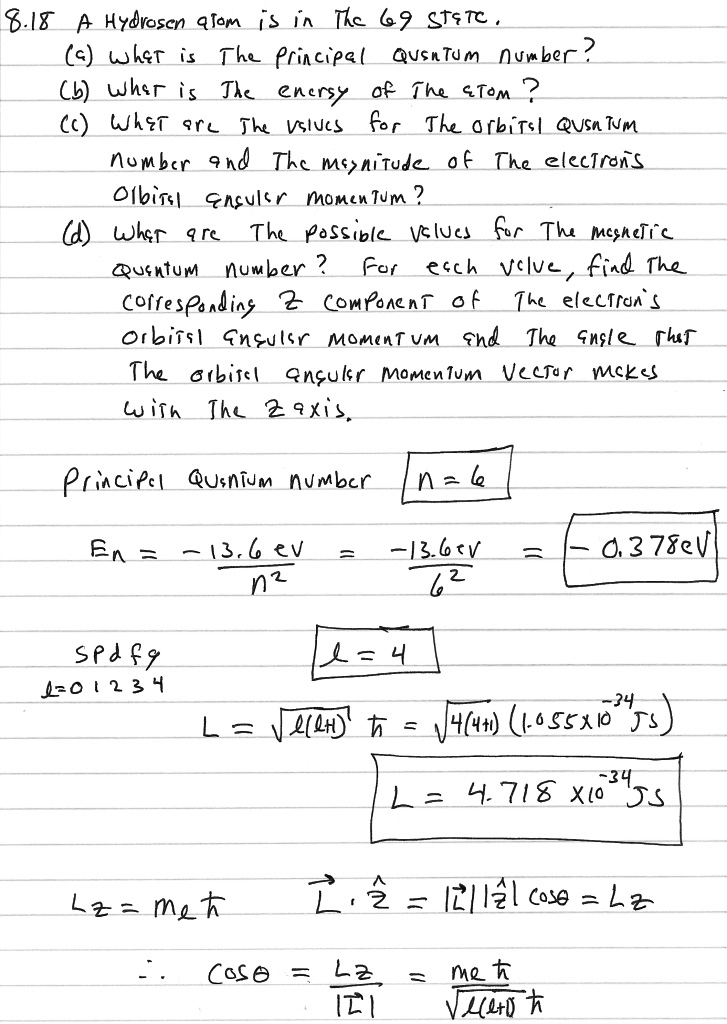 8.18 A Hydrogen atom is in The 6g STATE.
(a) what is The Principal Quantum number?
(b) what is The energy of The atom?
(c) What are The values for The orbital Quantum
number and The magnitude of The electron's
Orbital angular momentum?
(d) what are The possible values for The magnetic
Quantum number? For each value, find The
corresponding Z component of The electron's
orbital angular momentum and The angle That
The orbital angular momentum Vector makes
with The Z axis.
Principal Quantum number n = 6
En = -13.6 eV / n² = -13.6 eV / 6² = - 0.378 eV
s p d f g l = 4
l=0 1 2 3 4
L = √l(l+1) ħ = √4(4+1) (1.055 x 10⁻³⁴ Js)
L = 4.718 x10⁻³⁴ Js
Lz = mₑ ħ L⃗ · ẑ = |L⃗| |ẑ| cosθ = Lz
∴ cosθ = Lz / |L⃗| = mₑ ħ / √l(l+1) ħ